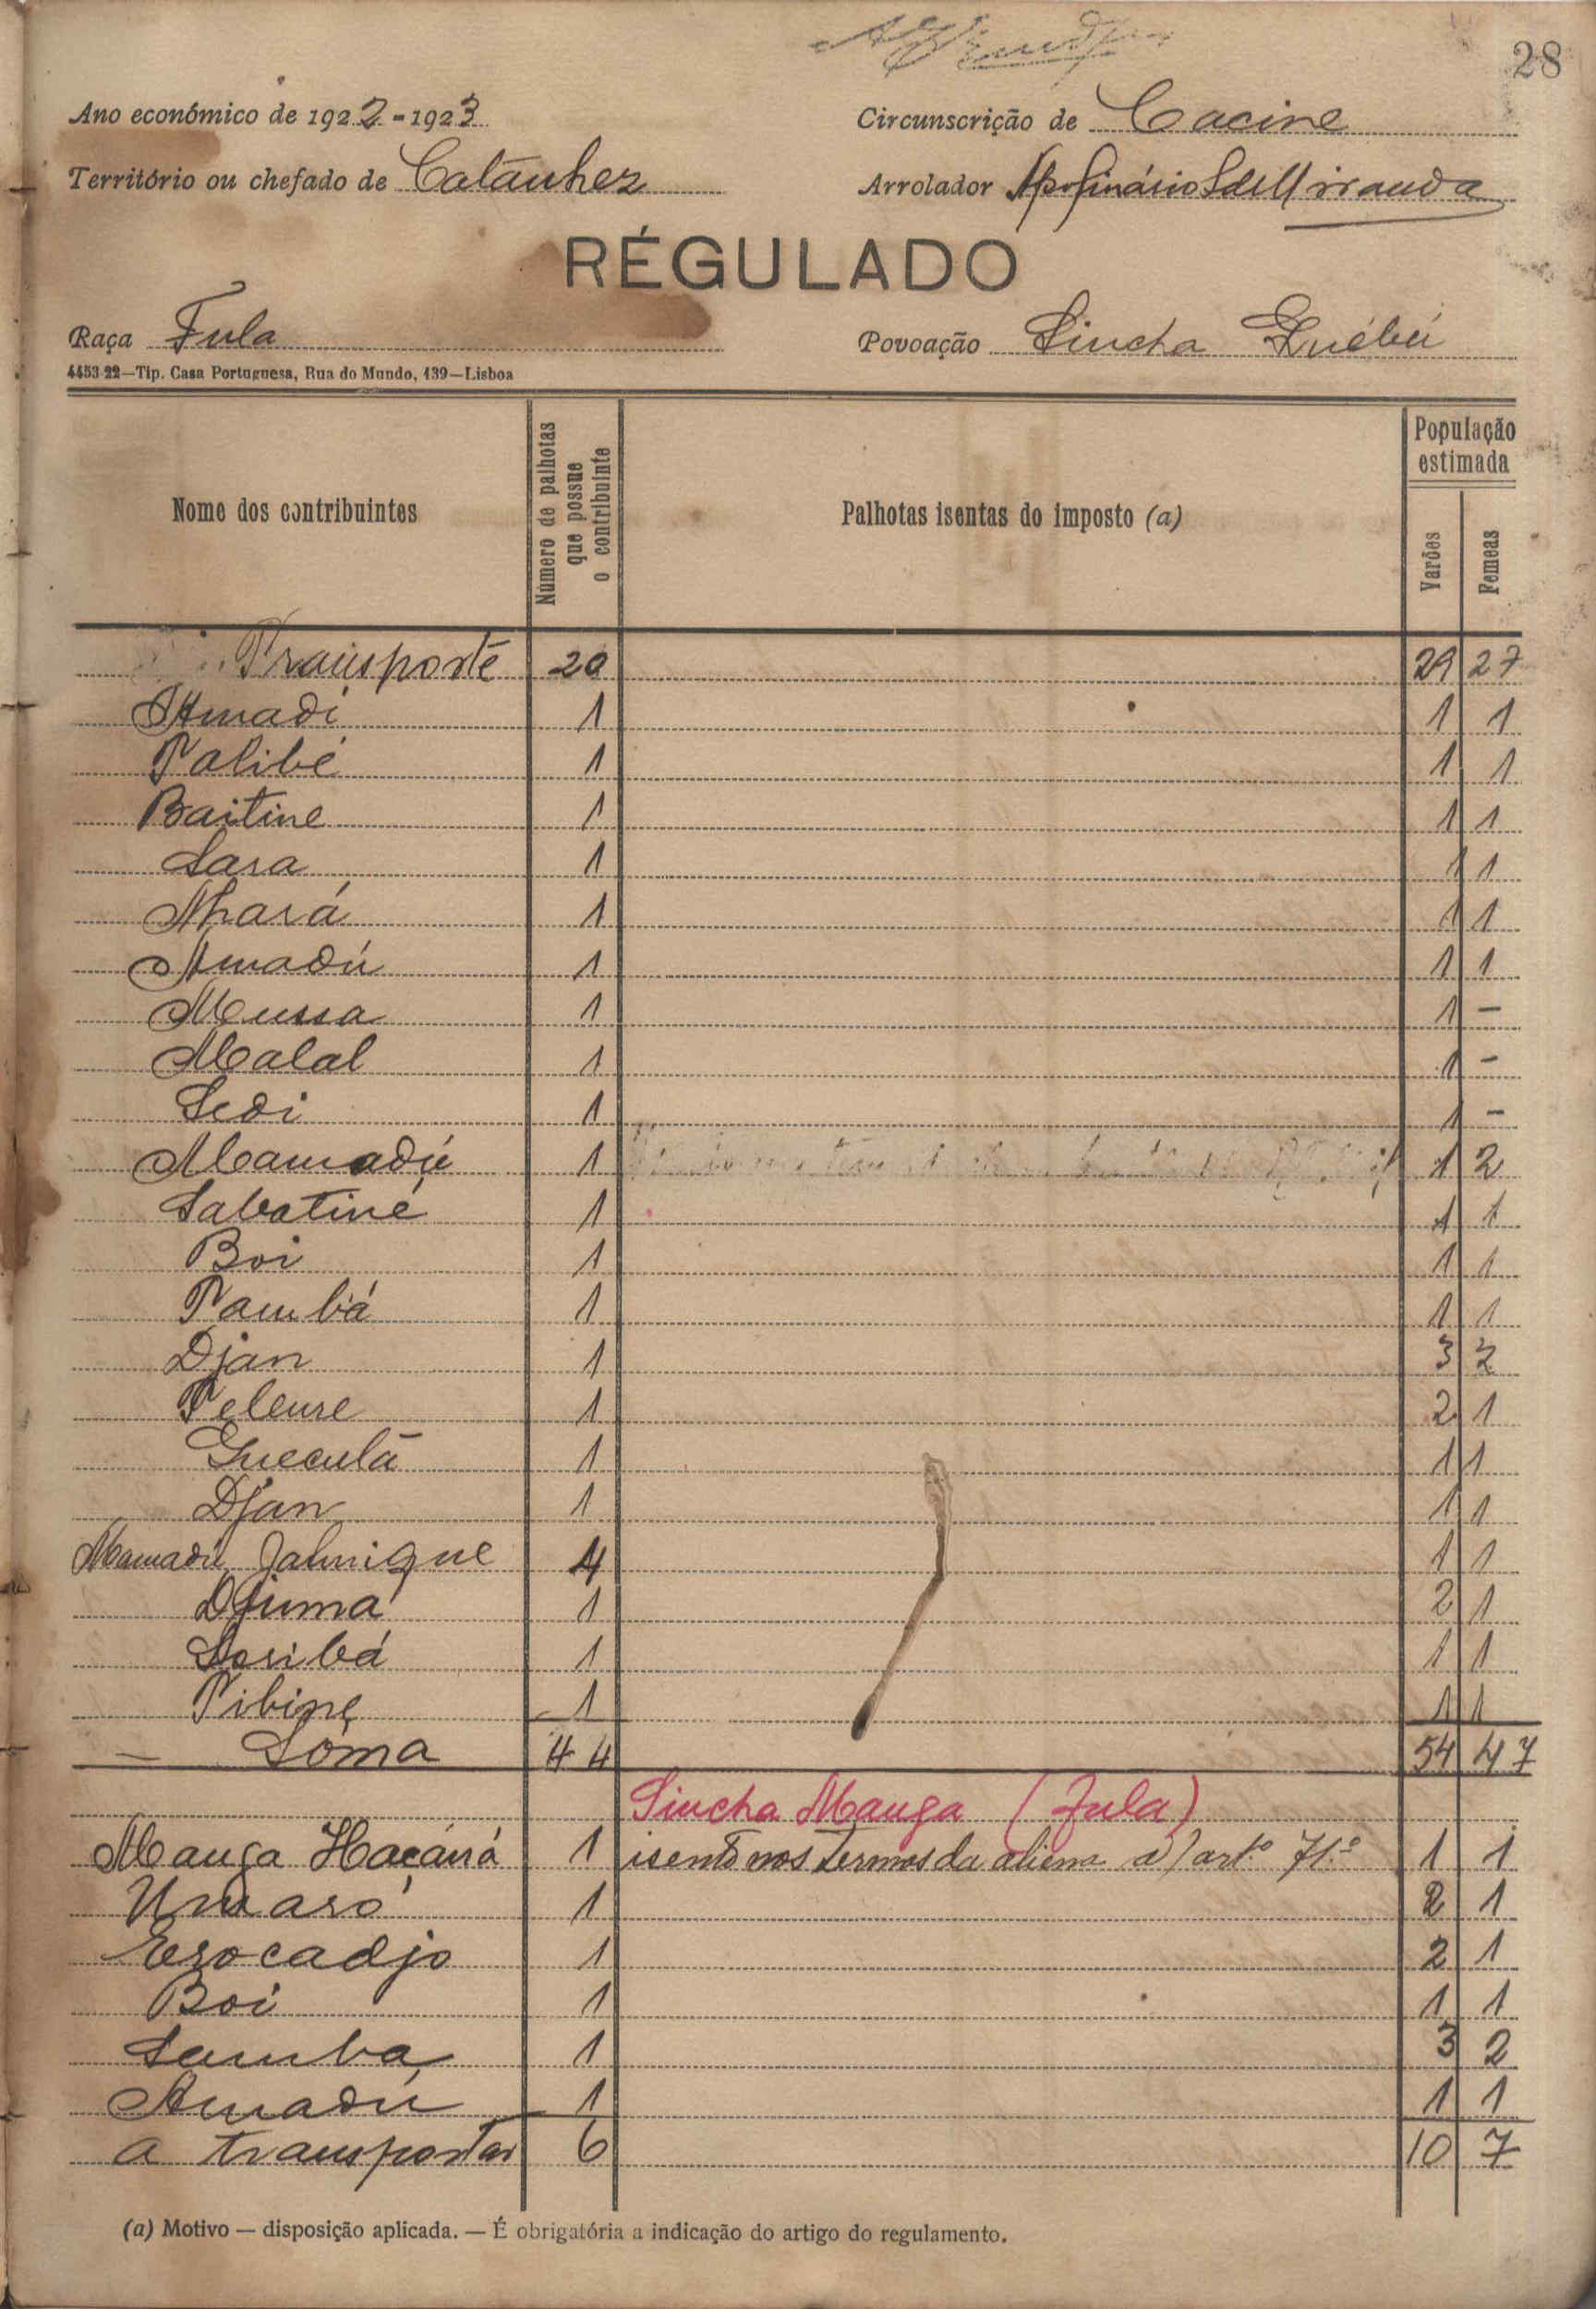 28
Ano económico de 1922-1923
Circunscrição de Cacine
Território ou chefado de Catanhez
Arrolador Apolinário S de Miranda
RÉGULADO
Raça Fula
Povoação Sincha Guébú
4453-22—Tip. Casa Portuguesa, Rua do Mundo, 139—Lisboa
Nome dos contribuintes
Número de palhotas que possue o contribuinte
Palhotas isentas do imposto (a)
População estimada
Varões
Femeas
Transporte 20 29 27
Amadi 1 1 1
Talibé 1 1 1
Baitine 1 1 1
Sara 1 1 1
Nhará 1 1 1
Amadú 1 1 1
Mussa 1 1 -
Malal 1 1 -
Sedi 1 1 -
Mamadú 1 1 2
Sabatiné 1 1 1
Boi 1 1 1
Tambá 1 1 1
Djan 1 3 2
Teleure 1 2 1
Gueculá 1 1 1
Djan 1 1 1
Mamadú Jalunique 4 1 1
Djuma 1 2 1
Soribá 1 1 1
Tibine 1 1 1
Soma 44 54 47
Sincha Manga (Fula)
Manga 1 isento nos termos da aliena a) artº 71º 1 1
Umaro 1 2 1
1 2 1
Boi 1 1 1
Samba 1 3 2
Amadú 1 1 1
a transportar 6 10 7
(a) Motivo — disposição aplicada. — É obrigatória a indicação do artigo do regulamento.